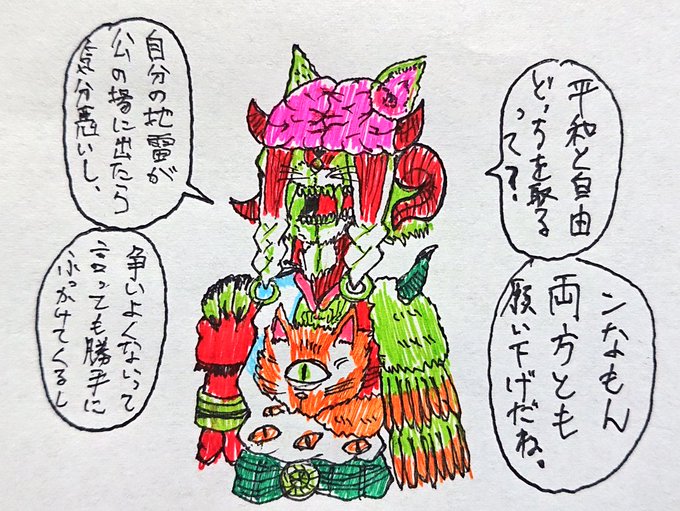 平和と自由
どっちを取る
って？
ンなもん
両方とも
願い下げだね、
自分の地雷が
公の場に出たら
気分悪いし、
争いよくないって
言っても勝手に
ふっかけてくるし